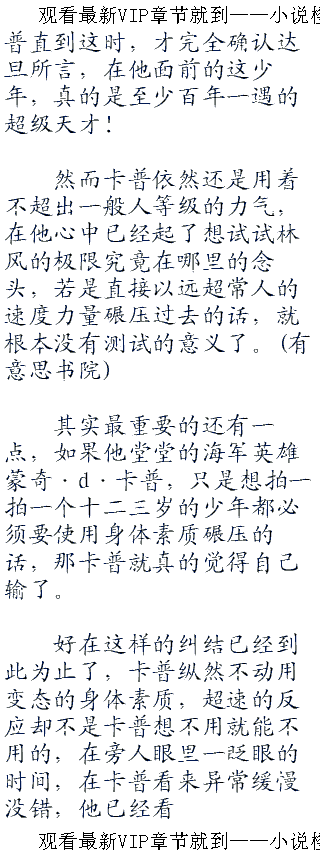 观看最新VIP章节就到——小说检
普直到这时，才完全确认达
旦所言，在他面前的这少
年，真的是至少百年一遇的
超级天才！
然而卡普依然还是用着
不超出一般人等级的力气，
在他心中已经起了想试试林
风的极限究竟在哪里的念
头，若是直接以远超常人的
速度力量碾压过去的话，就
根本没有测试的意义了。(有
意思书院)
其实最重要的还有一
点，如果他堂堂的海军英雄
蒙奇·d·卡普，只是想拍一
拍一个十二三岁的少年都必
须要使用身体素质碾压的
话，那卡普就真的觉得自己
输了。
好在这样的纠结已经到
此为止了，卡普纵然不动用
变态的身体素质，超速的反
应却不是卡普想不用就能不
用的，在旁人眼里一眨眼的
时间，在卡普看来异常缓慢
没错，他已经看
观看最新VIP章节就到——小说检